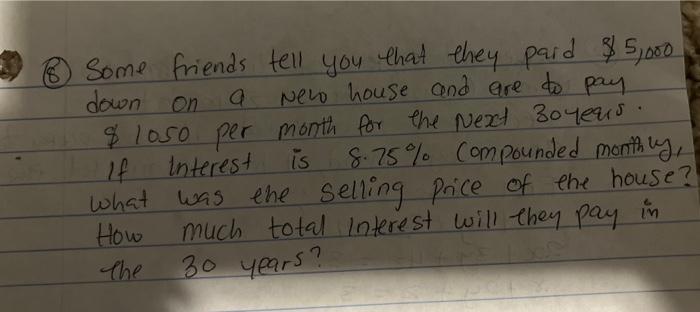 ⑧ Some friends tell you that they paid $5,000
down on a New house and are to pay
$1050 per month for the Next 30 years.
If interest is 8.75% Compounded monthly,
what was the selling price of the house?
How much total interest will they pay in
the 30 years?